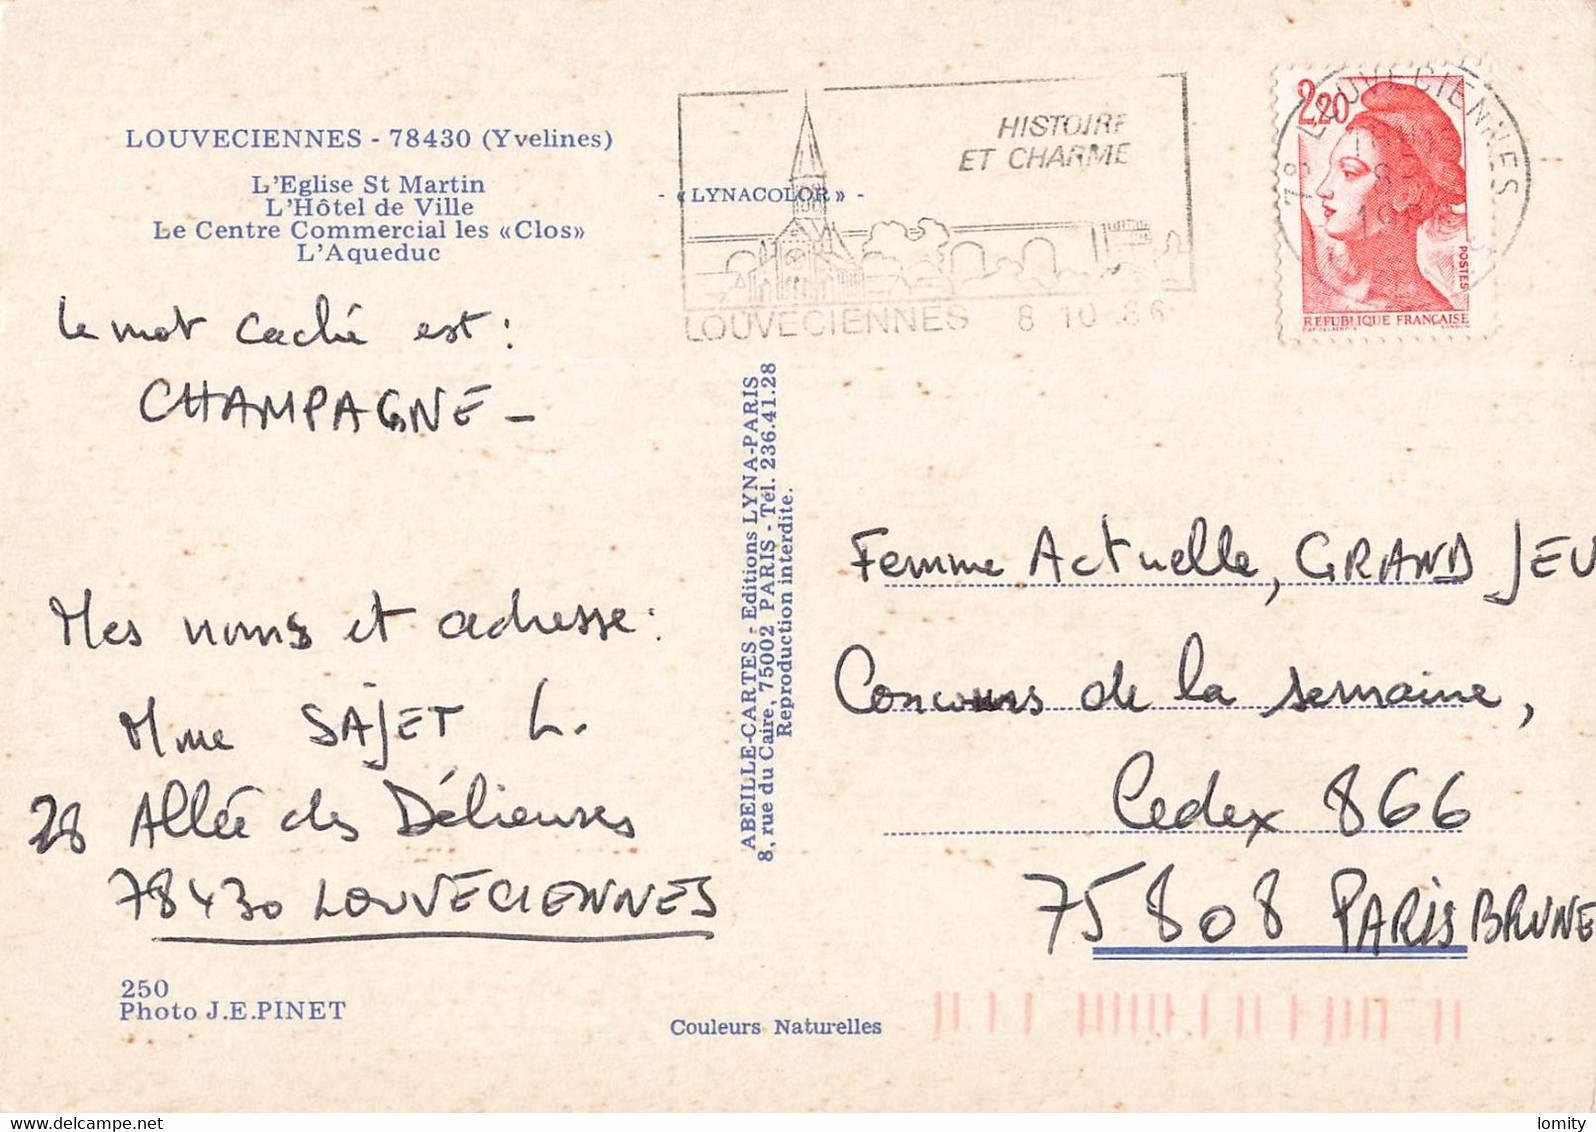 LOUVECIENNES - 78430 (Yvelines)
L'Eglise St Martin
L'Hôtel de Ville
Le Centre Commercial les «Clos»
L'Aqueduc
- «LYNACOLOR» -
HISTOIRE
ET CHARME
LOUVECIENNES 8 10 86
2,20
POSTES
REPUBLIQUE FRANÇAISE
78 LOUVECIENNES
le mot caché est :
CHAMPAGNE -
Mes noms et adresse :
Mme SAJET L.
28 Allée des Délieuses
78430 LOUVECIENNES
ABEILLE-CARTES - Editions LYNA-PARIS
8, rue du Caire, 75002 PARIS - Tél. 236.41.28
Reproduction interdite.
Femme Actuelle, GRAND JEU
Concours de la semaine,
Cedex 866
75 808 PARIS BRUNE
250
Photo J.E.PINET
Couleurs Naturelles
lomity